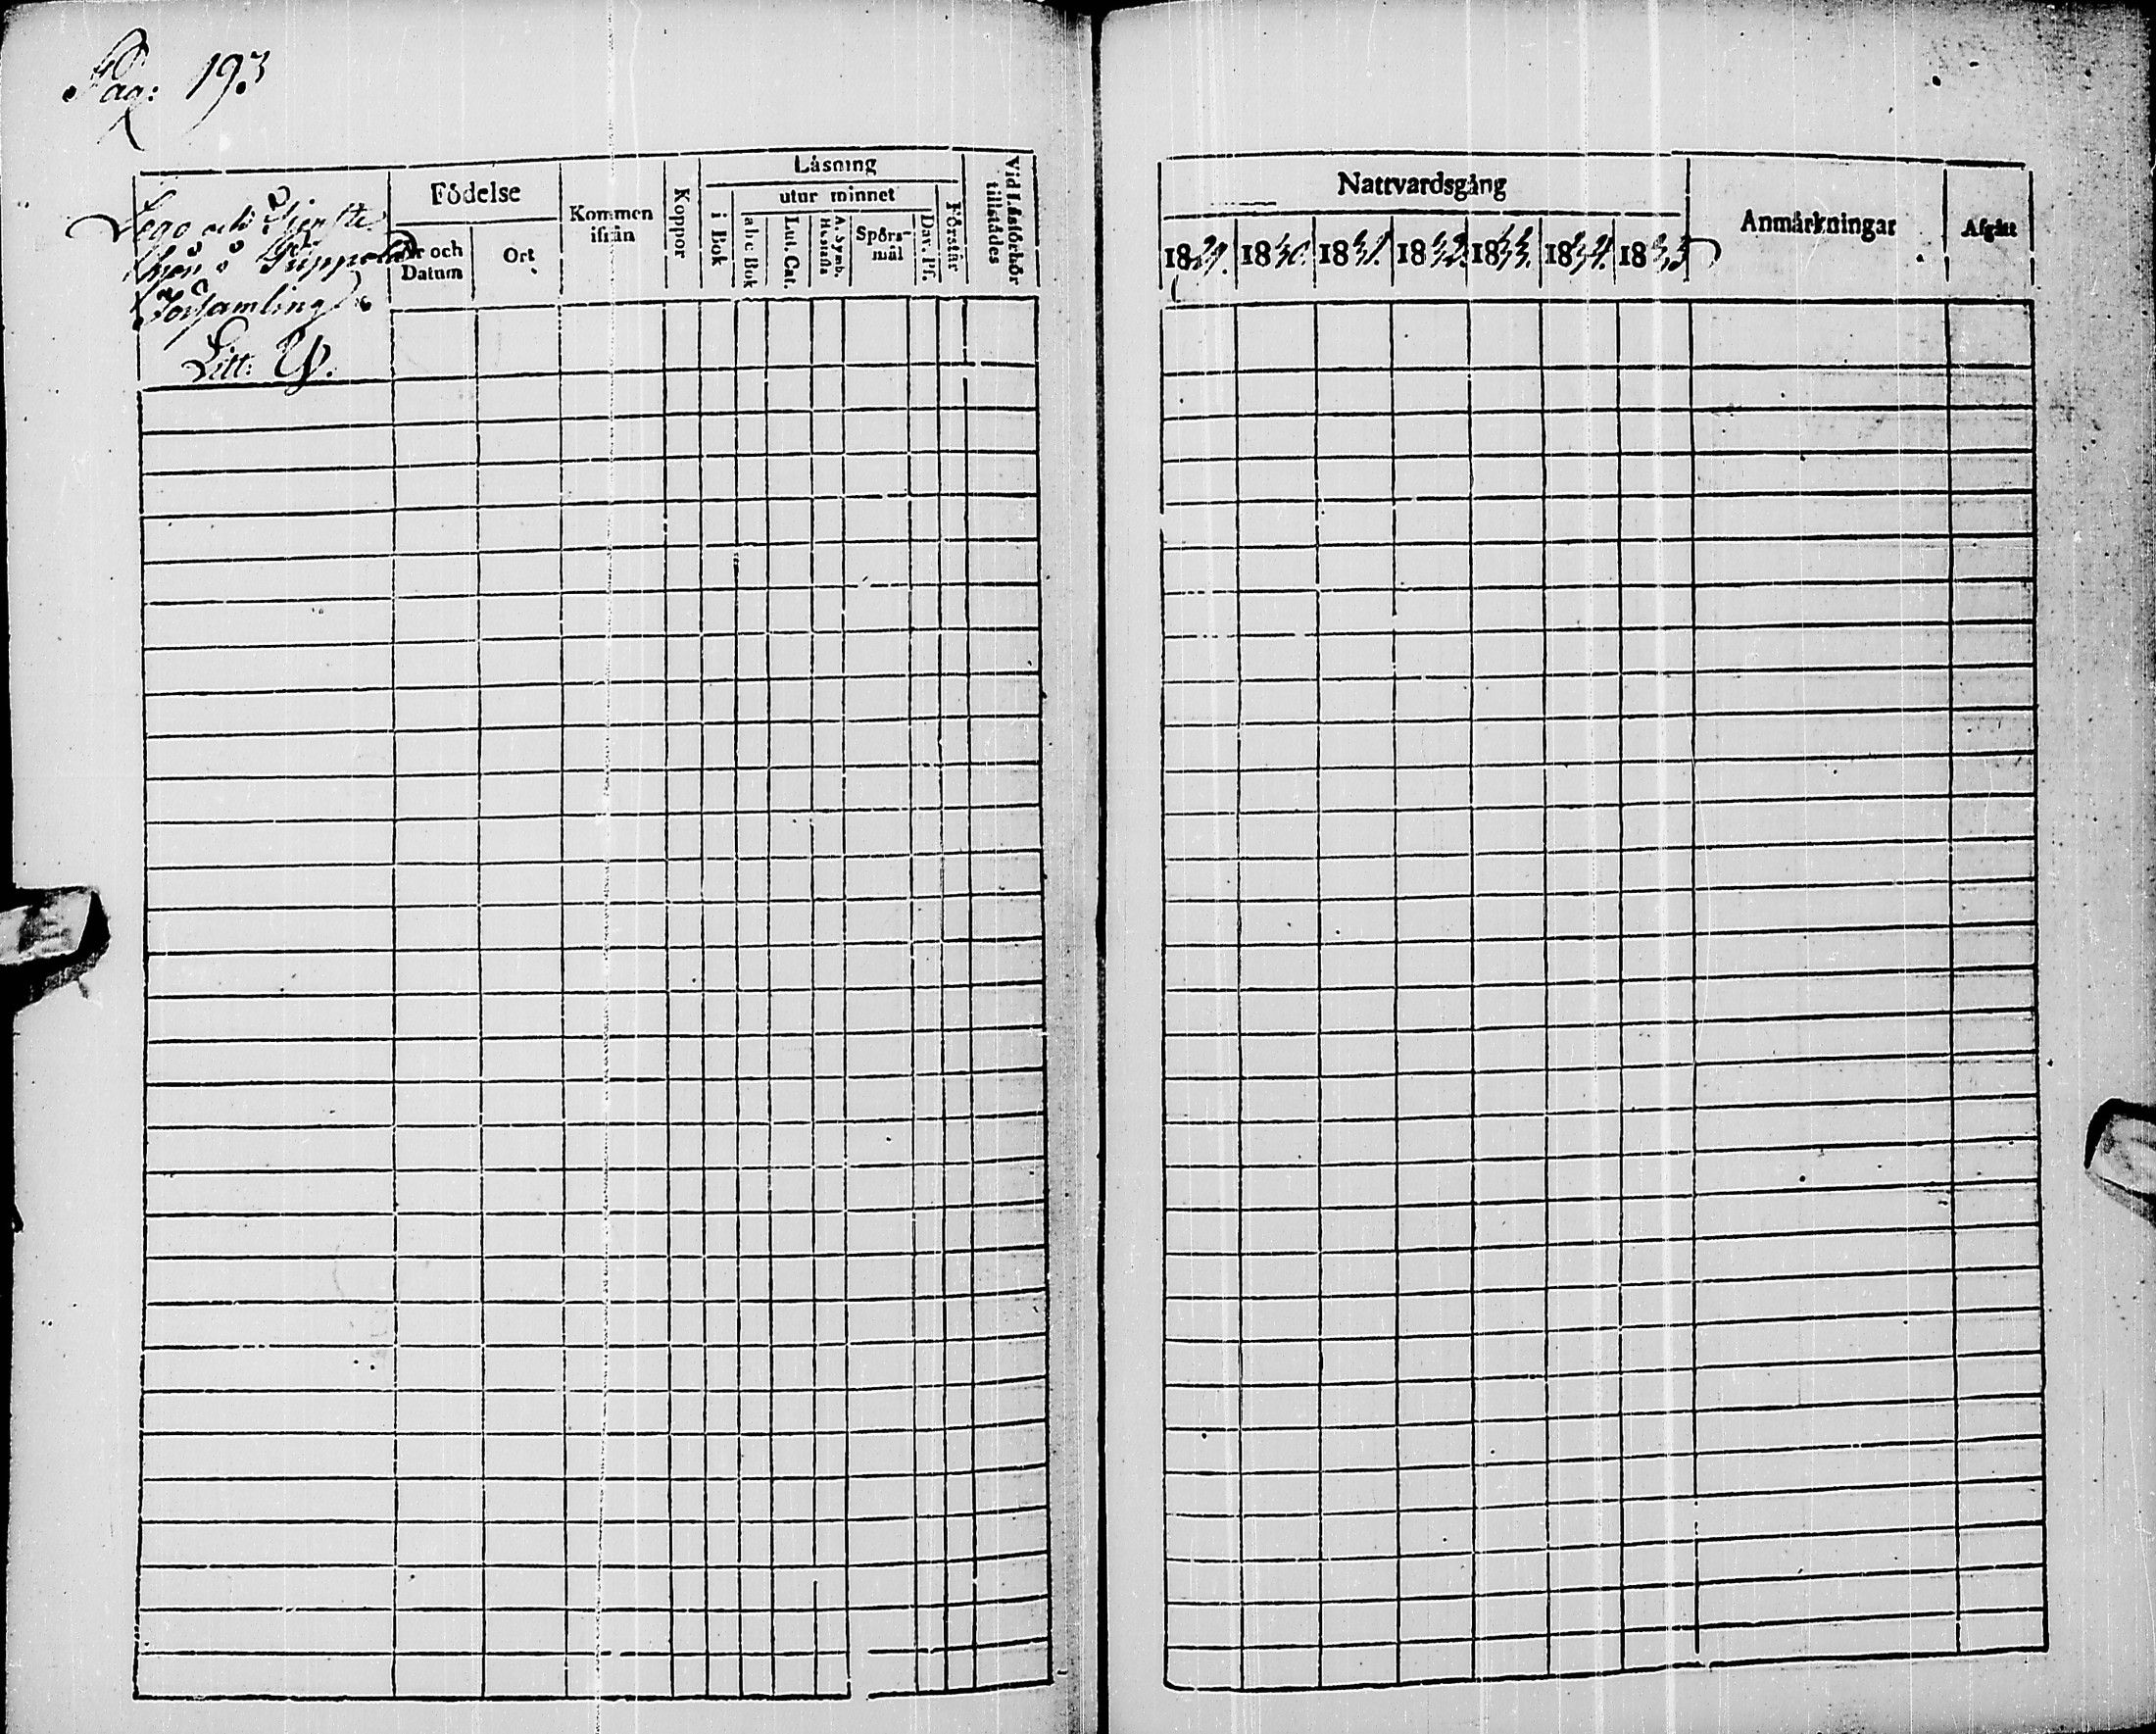 Pag: 193
Lego och Tjenste
hjon i Puppola
Församling
Litt: Y.
Födelse
År och
Datum
Ort
Kommen
ifrån
Koppor
Läsning
i Bok
utur minnet
abc Bok
Lut. Cat.
A. Symb.
Hustafla
Spörs-
mål
Dav. Ps.
Förstår
Vid Läsförhör
tillstädes
Nattvardsgång
1829. 1830. 1831. 1832. 1833. 1834. 1835
Anmärkningar
Afgått